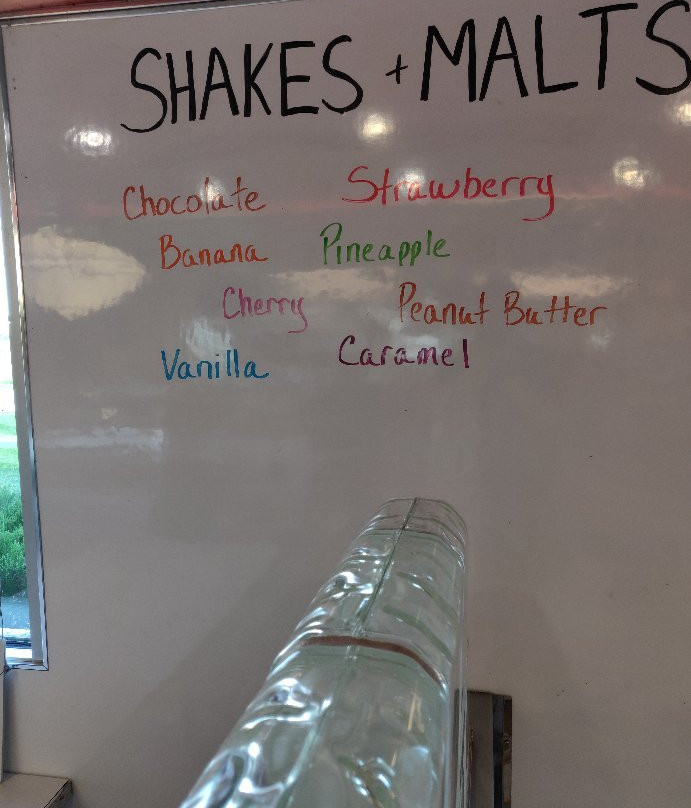 SHAKES + MALTS
Chocolate Strawberry
Banana Pineapple
Cherry Peanut Butter
Vanilla Caramel